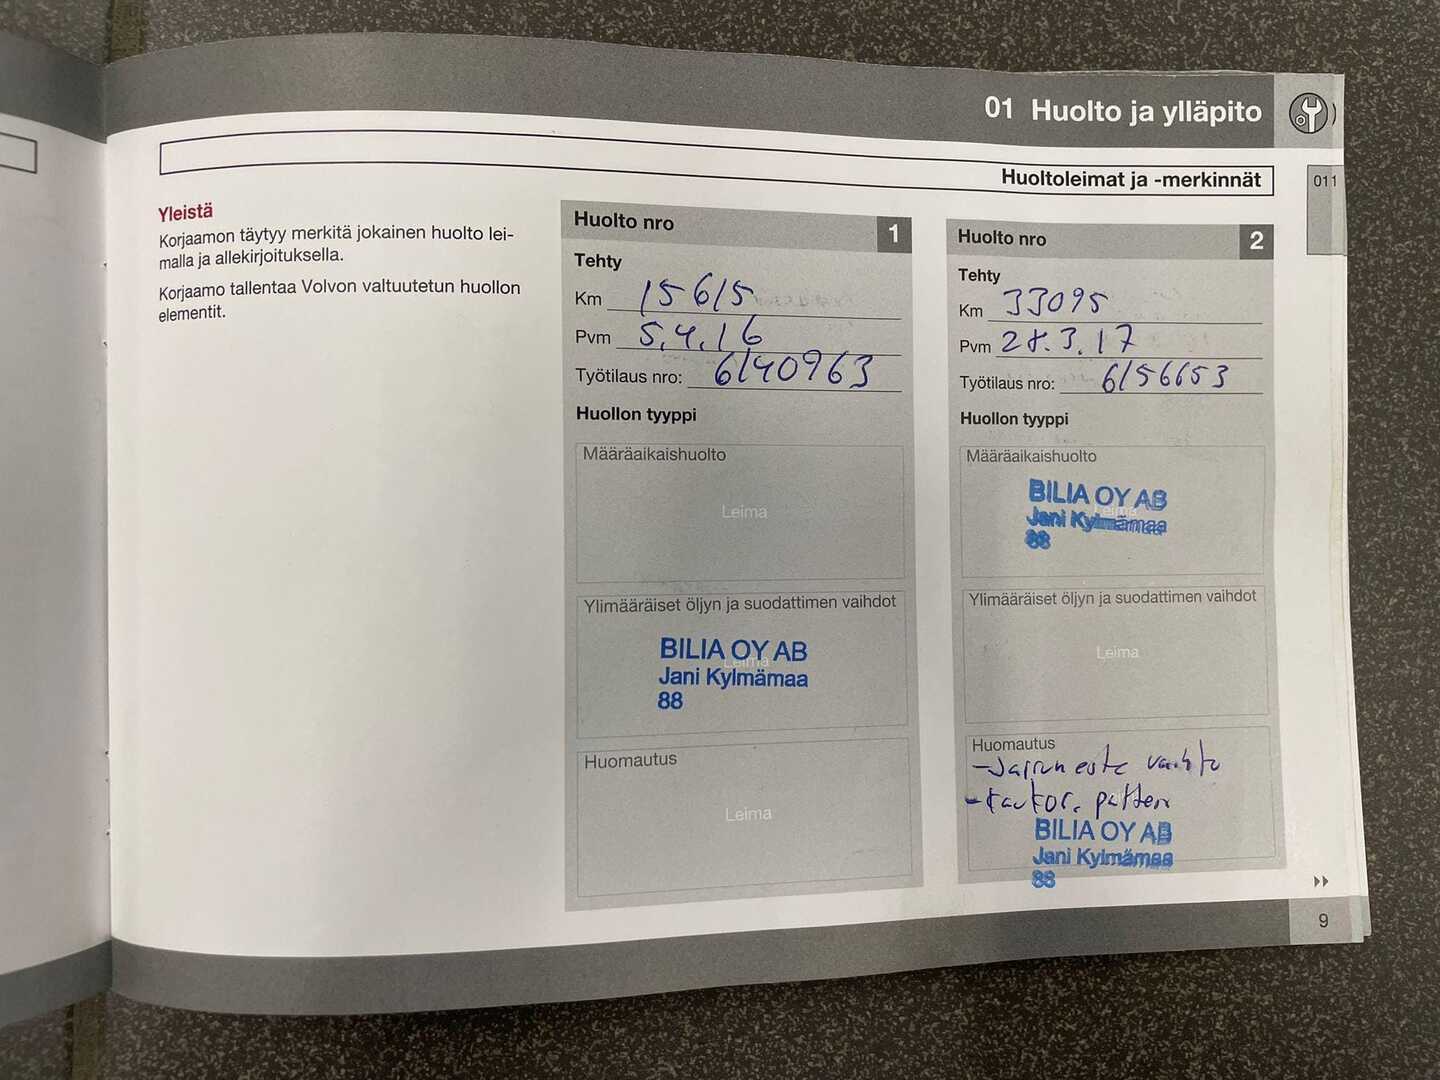 01 Huolto ja ylläpito
Huoltoleimat ja -merkinnät
011
Yleistä
Korjaamon täytyy merkitä jokainen huolto lei-
malla ja allekirjoituksella.
Korjaamo tallentaa Volvon valtuutetun huollon
elementit.
Huolto nro 1
Tehty
Km 15615
Pvm 5.4.16
Työtilaus nro: 6140963
Huollon tyyppi
Määräaikaishuolto
Leima
Ylimääräiset öljyn ja suodattimen vaihdot
Leima
BILIA OY AB
Jani Kylmämaa
88
Huomautus
Leima
Huolto nro 2
Tehty
Km 33095
Pvm 28.3.17
Työtilaus nro: 6156653
Huollon tyyppi
Määräaikaishuolto
Leima
BILIA OY AB
Jani Kylmämaa
88
Ylimääräiset öljyn ja suodattimen vaihdot
Leima
Huomautus
-Jarruneste vaihto
BILIA OY AB
Jani Kylmämaa
88
9